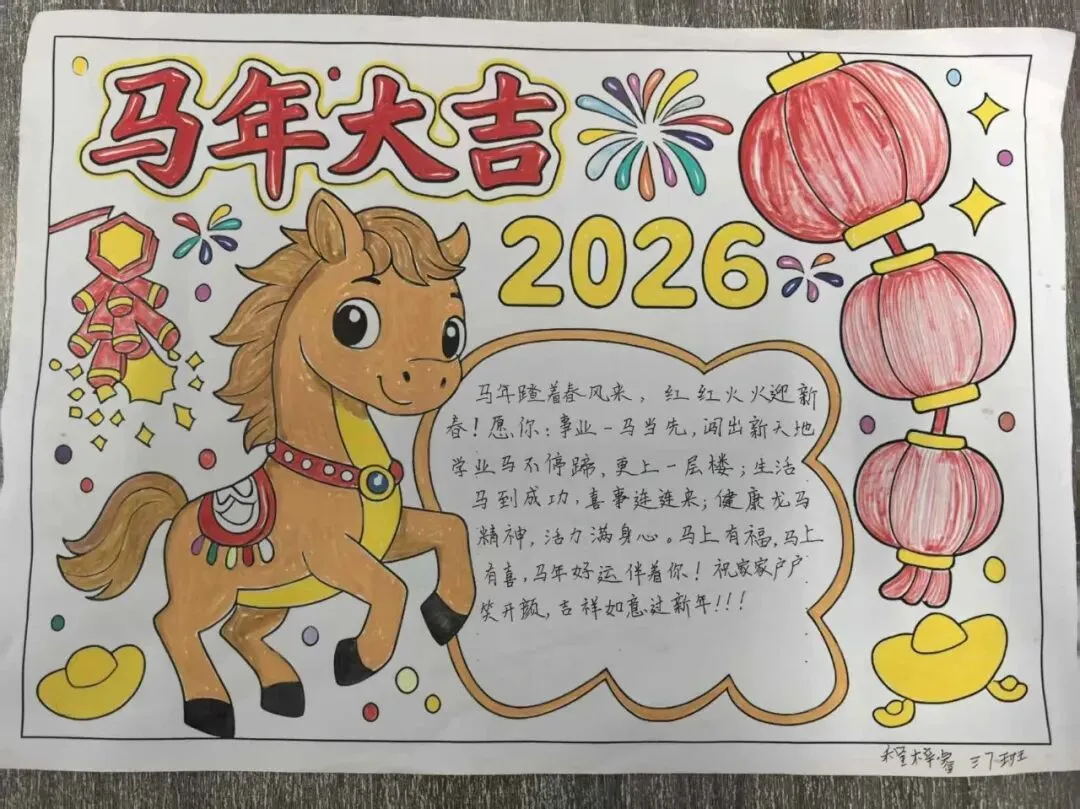 马年大吉
2026
马年踏着春风来，红红火火迎新
春！愿你：事业一马当先，闯出新天地
学业马不停蹄，更上一层楼；生活
马到成功，喜事连连来；健康龙马
精神，活力满身心。马上有福，马上
有喜，马年好运伴着你！祝家家户户
笑开颜，吉祥如意过新年！！！
班